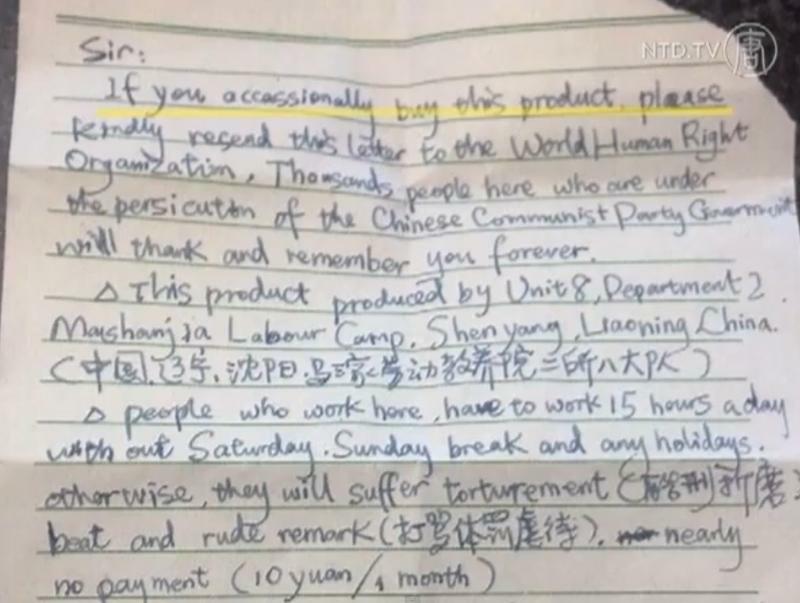 NTD.TV
Sir:
If you accassionally buy this product, please
kindly resend this letter to the World Human Right
Organization. Thousands people here who are under
the persicution of the Chinese Communist Party Government
will thank and remember you forever.
△ This product produced by Unit 8, Department 2.
Mashanjia Labour Camp, ShenYang, Liaoning China.
(中国, 辽宁, 沈阳, 马三家劳动教养院二所八大队)
△ people who work here, have to work 15 hours a day
with out Saturday, Sunday break and any holidays.
otherwise, they will suffer torturement () 折磨
beat and rude remark (打骂体罚虐待). nearly
no payment (10 yuan/1 month)